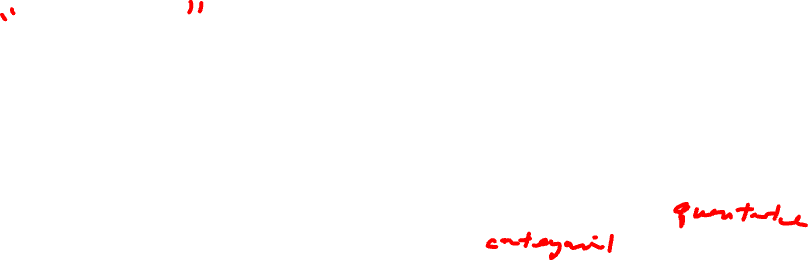 " "
quantitative
categorical